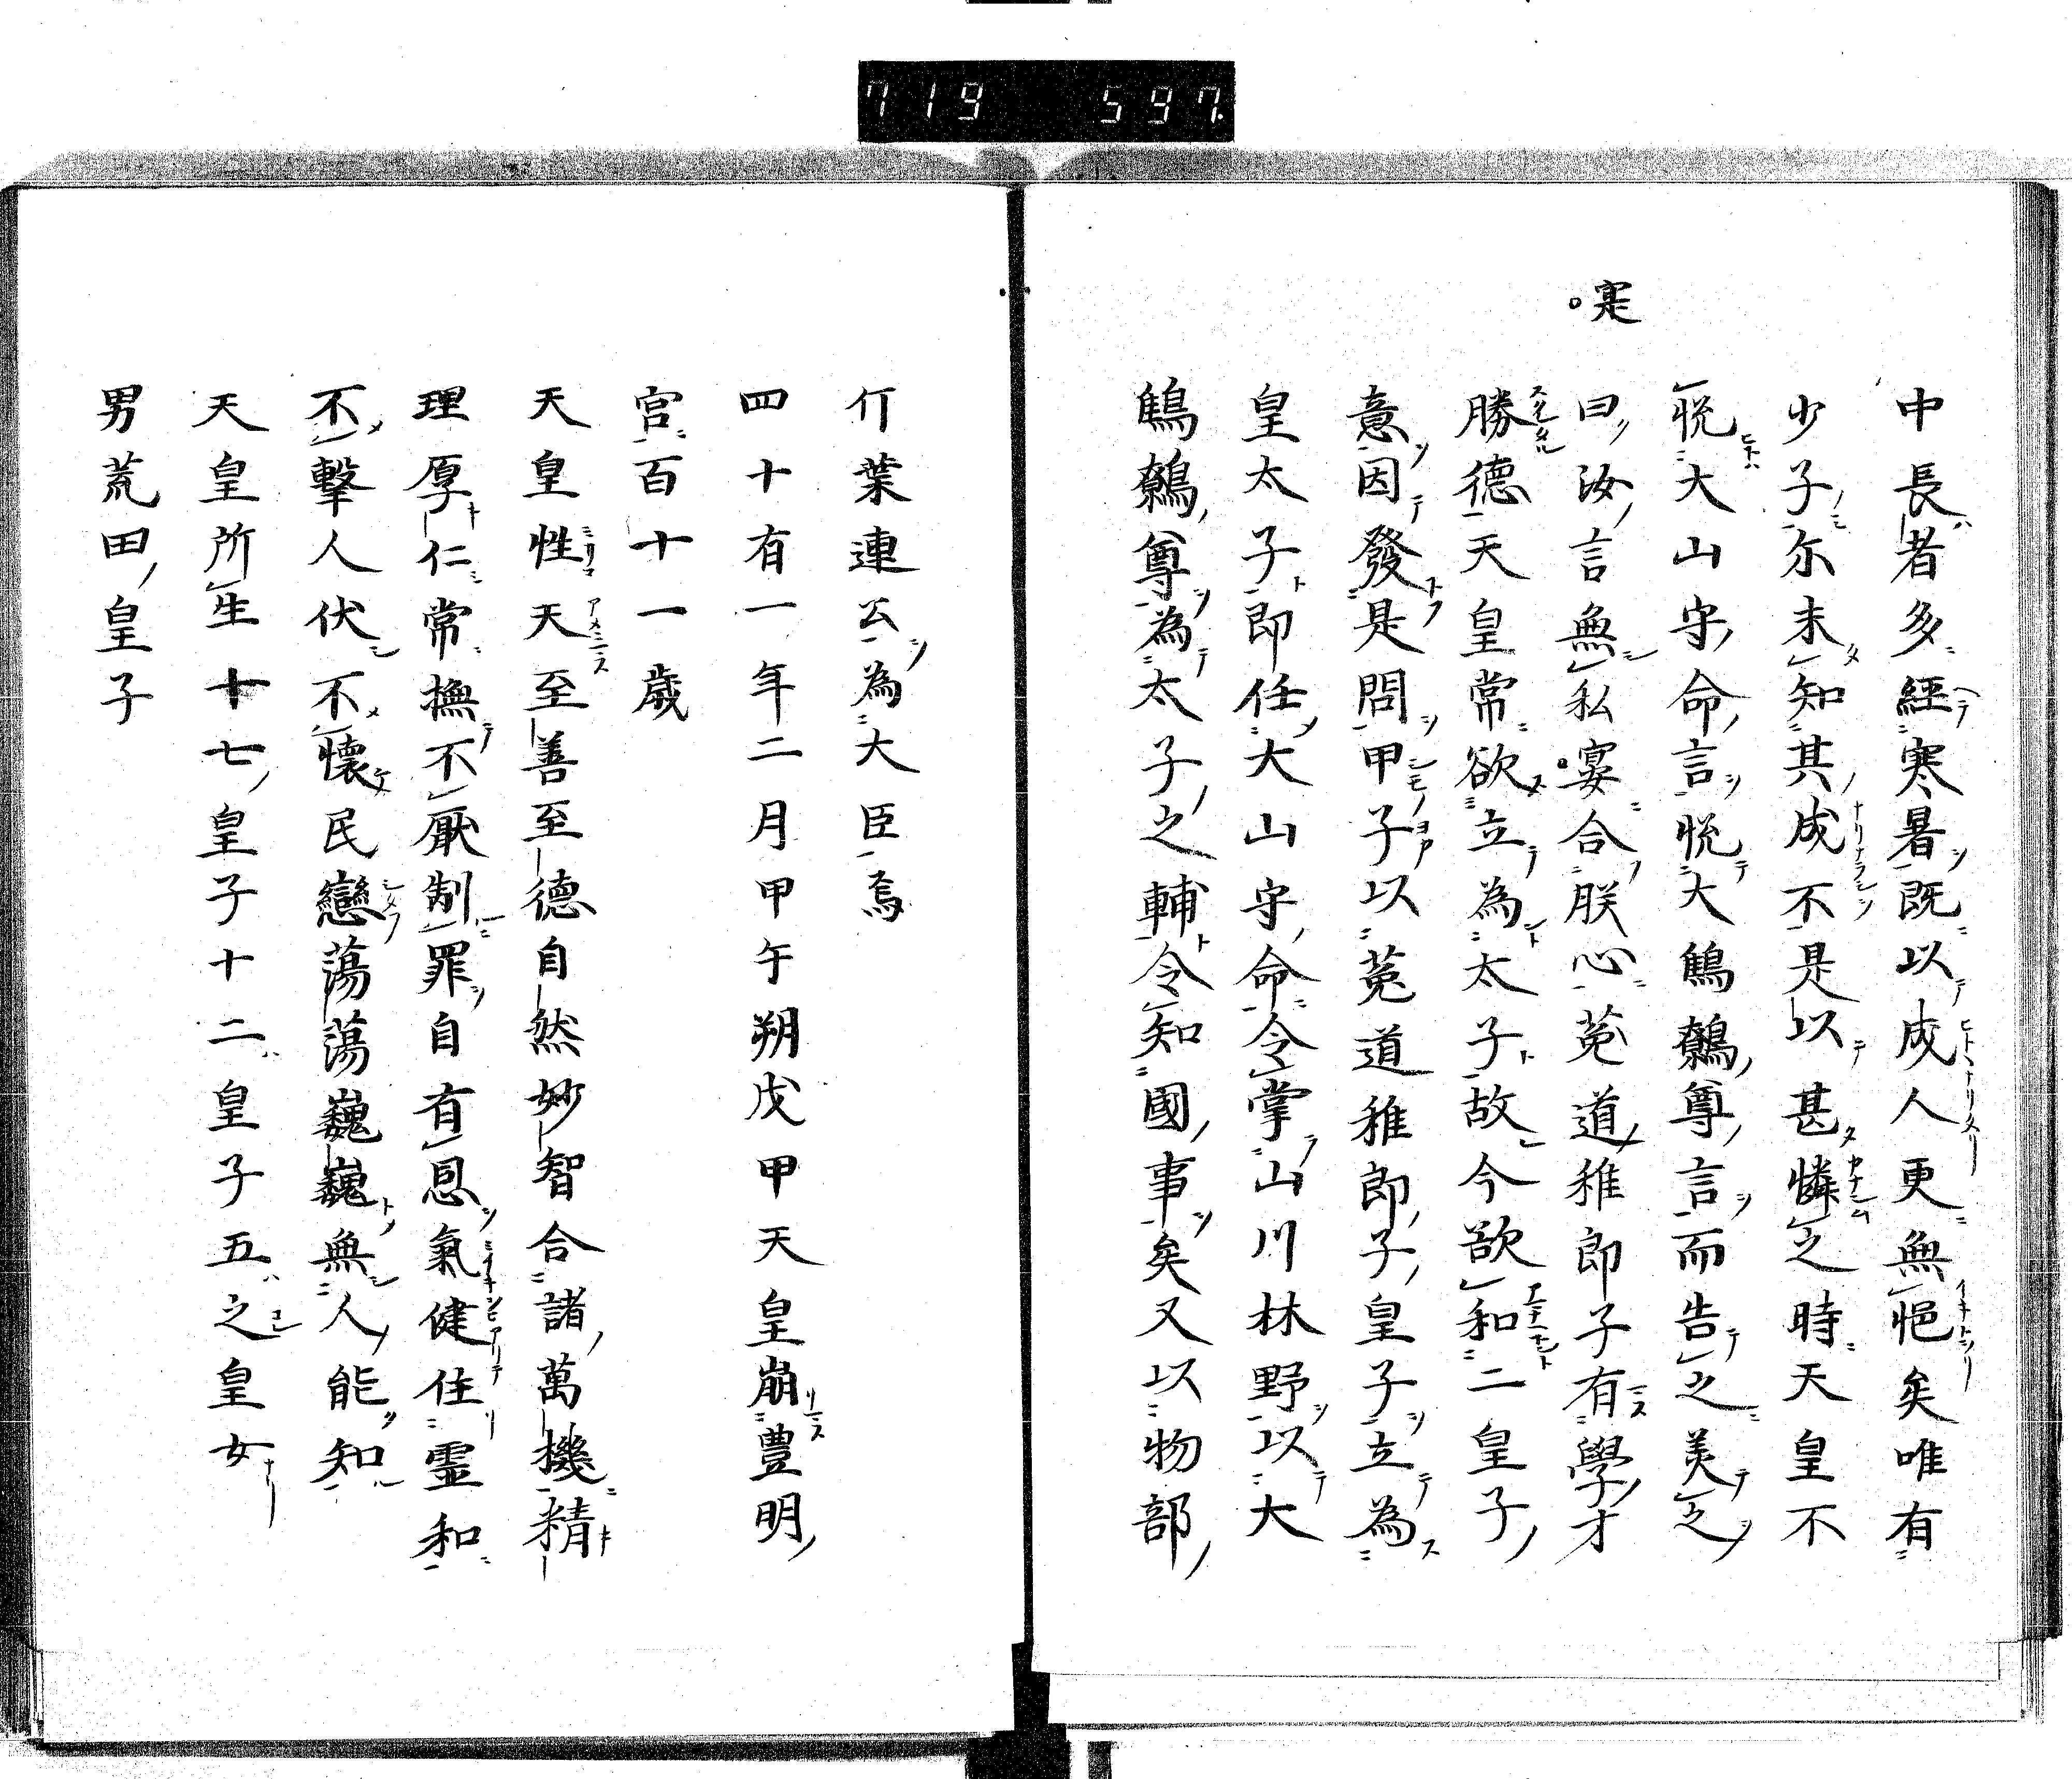 719 597.
寔
中長者多經寒暑既以成人更無悒矣唯有
少子尓未知其成不是以甚憐之時天皇不
悦大山守命言悦大鷦鷯尊言而告之美之
曰汝言無私寔合朕心菟道稚郎子有學才
勝德天皇常欲立為太子故今欲和二皇子
意因發是問甲子以菟道稚郎子皇子立為
皇太子即任大山守命令掌山川林野以大
鷦鷯尊為太子之輔令知國事矣又以物部
仃葉連公為大臣焉
四十有一年二月甲午朔戊甲天皇崩豊明
宮百十一歲
天皇性天至善至德自然妙智合諸萬機精
理厚仁常撫不厭制罪自有恩氣健住霊和
不擊人伏不懐民戀蕩蕩巍巍無人能知
天皇所生十七皇子十二皇子五之皇女
男荒田皇子